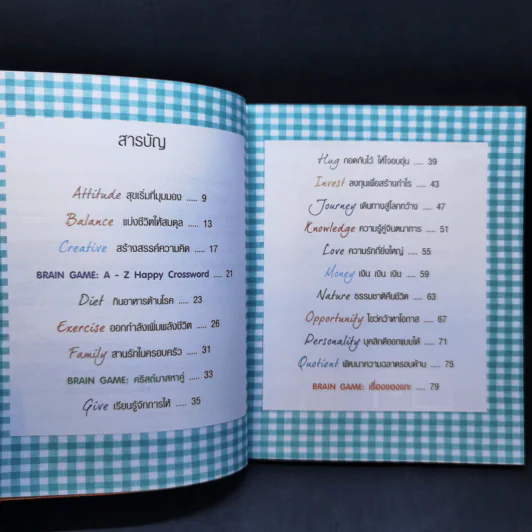 สารบัญ
Attitude สุขเริ่มที่มุมมอง ..... 9
Balance แบ่งชีวิตให้สมดุล ..... 13
Creative สร้างสรรค์ความคิด ..... 17
BRAIN GAME: A - Z Happy Crossword ..... 21
Diet กินอาหารต้านโรค ..... 23
Exercise ออกกำลังเพิ่มพลังชีวิต ..... 26
Family สานรักในครอบครัว ..... 31
BRAIN GAME: คริสต์มาสหาคู่ ..... 33
Give เรียนรู้จักการให้ ..... 35
Hug กอดกันไว้ ให้ใจอบอุ่น ..... 39
Invest ลงทุนเพื่อสร้างกำไร ..... 43
Journey เดินทางสู่โลกกว้าง ..... 47
Knowledge ความรู้คู่จินตนาการ ..... 51
Love ความรักที่ยิ่งใหญ่ ..... 55
Money เงิน เงิน เงิน ..... 59
Nature ธรรมชาติคืนชีวิต ..... 63
Opportunity ไขว่คว้าหาโอกาส ..... 67
Personality บุคลิกดีออกแบบได้ ..... 71
Quotient พัฒนาความฉลาดรอบด้าน ..... 75
BRAIN GAME: เรื่องของแกะ ..... 79